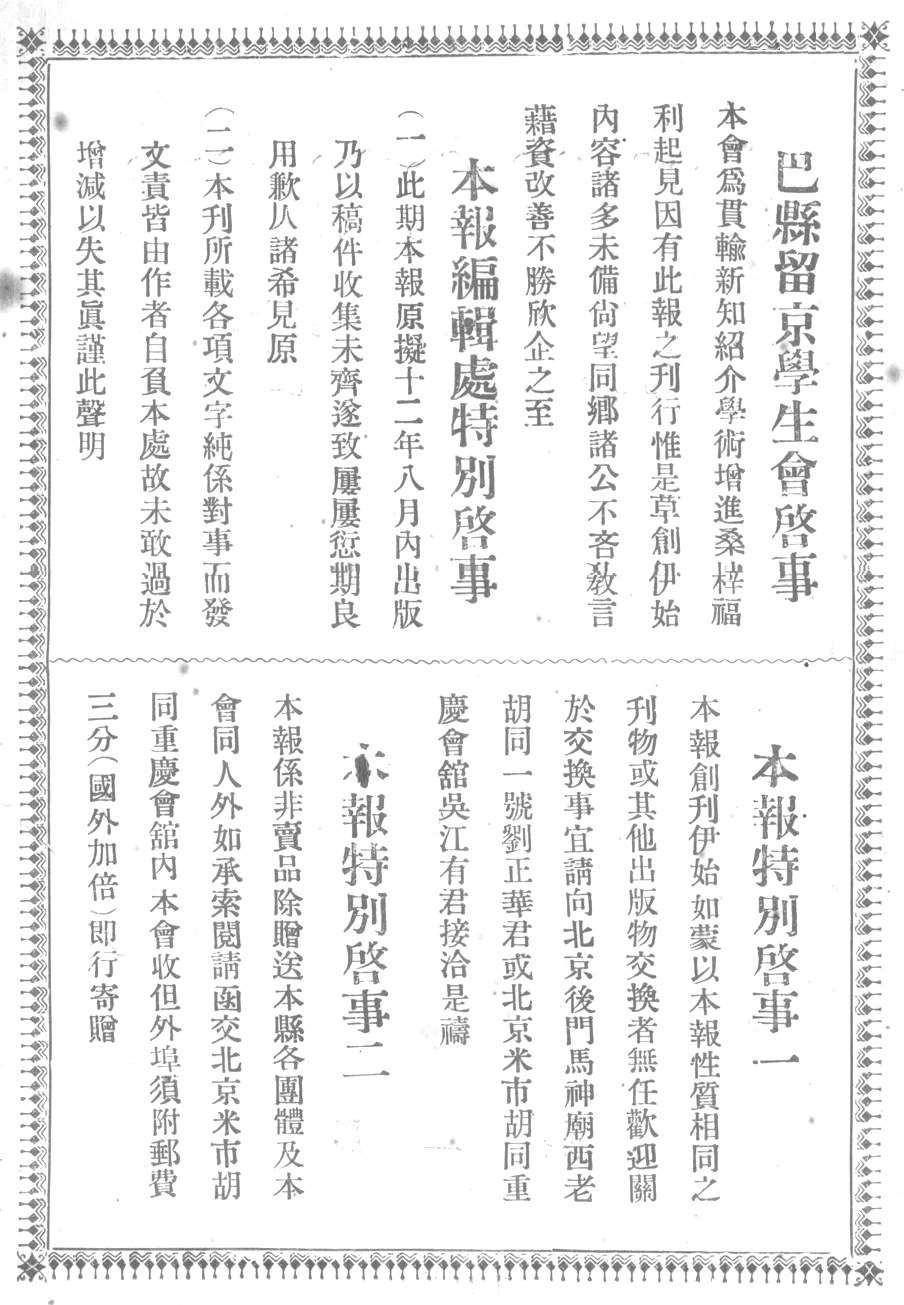 巴縣留京學生會啓事
本會爲貫輸新知紹介學術增進桑梓福
利起見因有此報之刊行惟是草創伊始
內容諸多未備尙望同鄉諸公不吝敎言
藉資改善不勝欣企之至
本報編輯處特別啓事
（一）此期本報原擬十二年八月內出版
乃以稿件收集未齊遂致屢屢愆期良
用歉仄諸希見原
（二）本刊所載各項文字純係對事而發
文責皆由作者自負本處故未敢過於
增減以失其眞謹此聲明
本報特別啓事一
本報創刊伊始如蒙以本報性質相同之
刊物或其他出版物交換者無任歡迎關
於交換事宜請向北京後門馬神廟西老
胡同一號劉正華君或北京米市胡同重
慶會舘吳江有君接洽是禱
本報特別啓事二
本報係非賣品除贈送本縣各團體及本
會同人外如承索閱請函交北京米市胡
同重慶會舘內本會收但外埠須附郵費
三分（國外加倍）即行寄贈